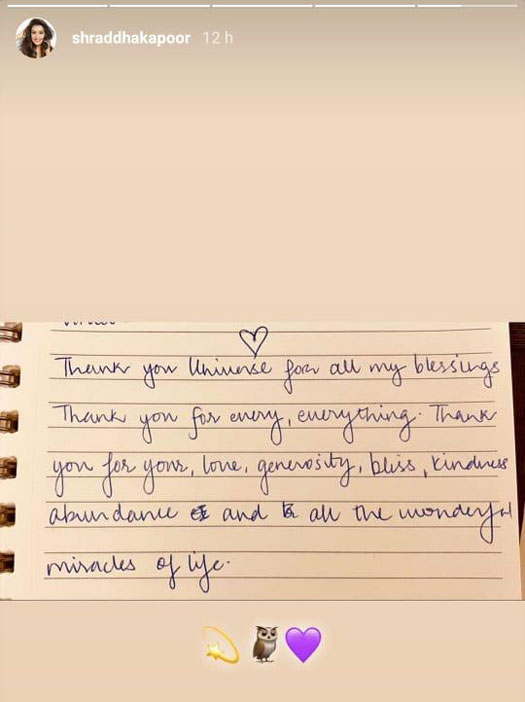 shraddhakapoor 12 h
Thank you Universe for all my blessings
Thank you for every, everything. Thank
you for your, love, generosity, bliss, kindness
abundance and all the wonderful
miracles of life.